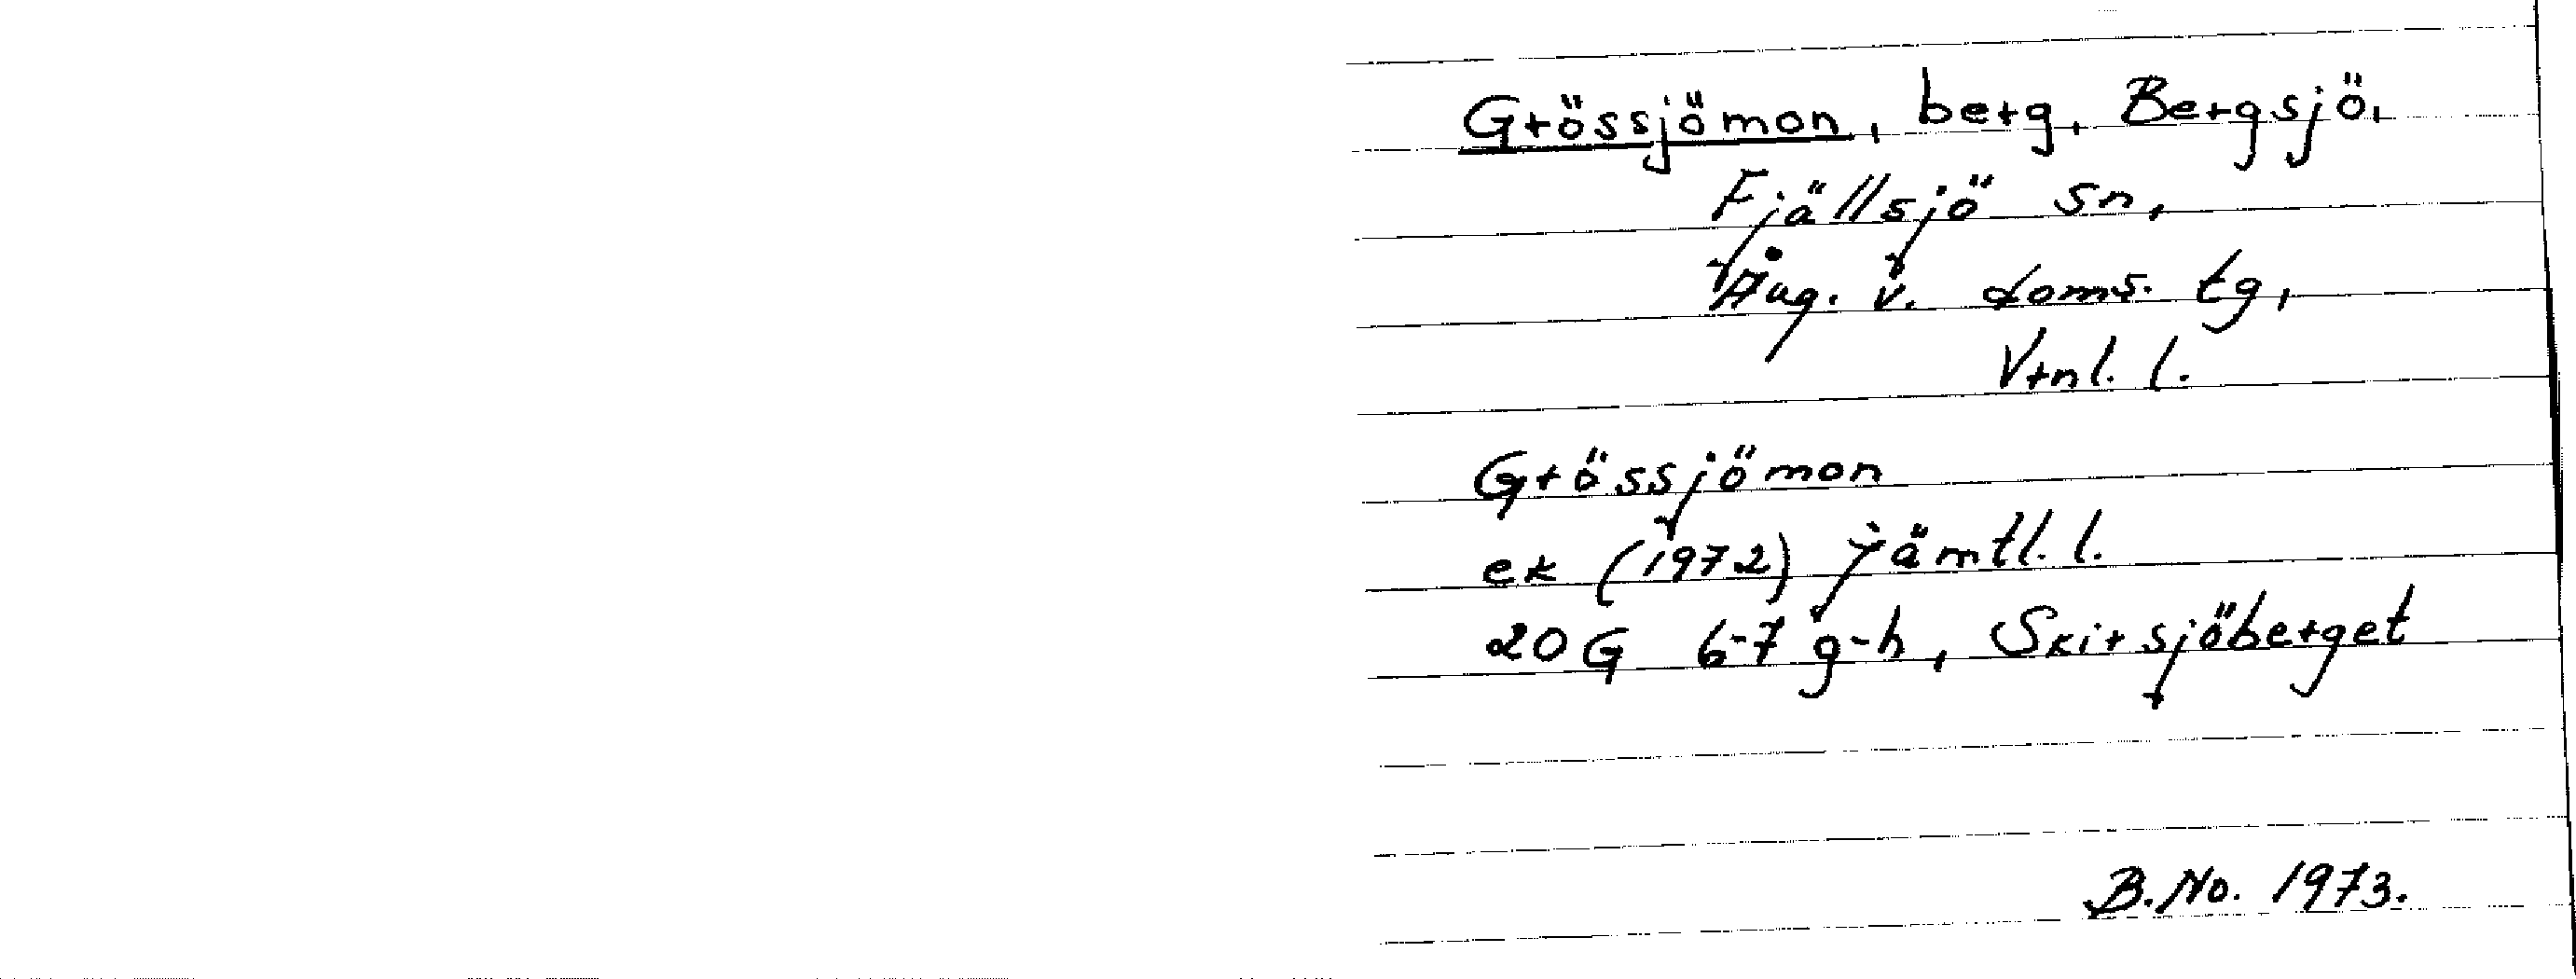 Grössjömon, berg, Bergsjö,
Fjällsjö sn,
Ång. v. doms. tg,
Vrnl. l.
Grössjömon
ek (1972) Jämtl. l.
20 G 6-7 g-h, Skirsjöberget
B. No. 1973.